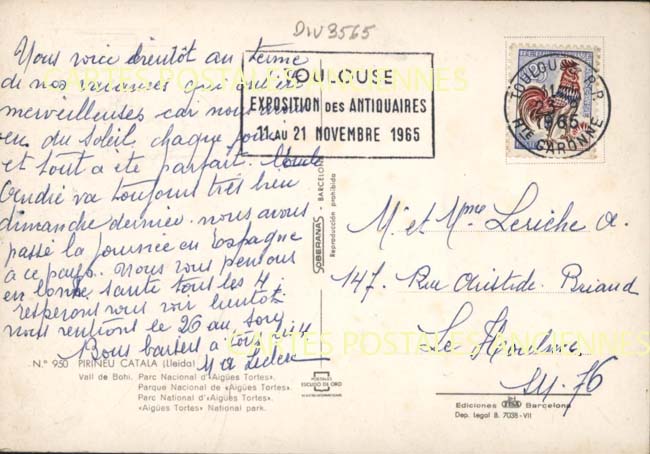 DIV3565
Nous voici bientôt au terme
de nos vacances qui ont été
merveilleuses car nous avons
eu du soleil chaque jour
et tout a été parfait.
André va toujours très bien
dimanche dernier nous avons
passé la journée en Espagne
à ce pays. Nous vous pensons
en bonne santé tous les 4.
esperons vous voir bientôt
nous rentrons le 26 au soir
Bons baisers à tous les 4
TOULOUSE
EXPOSITION des ANTIQUAIRES
11 AU 21 NOVEMBRE 1965
TOULOUSE R.P.
1965
Hte GARONNE
M. et Mme Leriche A.
147. Rue Aristide Briand
Le Havre
76
SOBERANAS - BARCELONA
Reproducción prohibida
N.º 950 PIRINEU CATALA (Lleida)
Vall de Bohí. Parc Nacional d'«Aigües Tortes».
Parque Nacional de «Aigües Tortes».
Parc National d'«Aigües Tortes».
«Aigües Tortes» National park.
POSTALES
ESCUDO DE ORO
Ediciones Barcelona
Dep. Legal B. 7038-VII
CARTES POSTALES ANCIENNES
CARTES POSTALES ANCIENNES